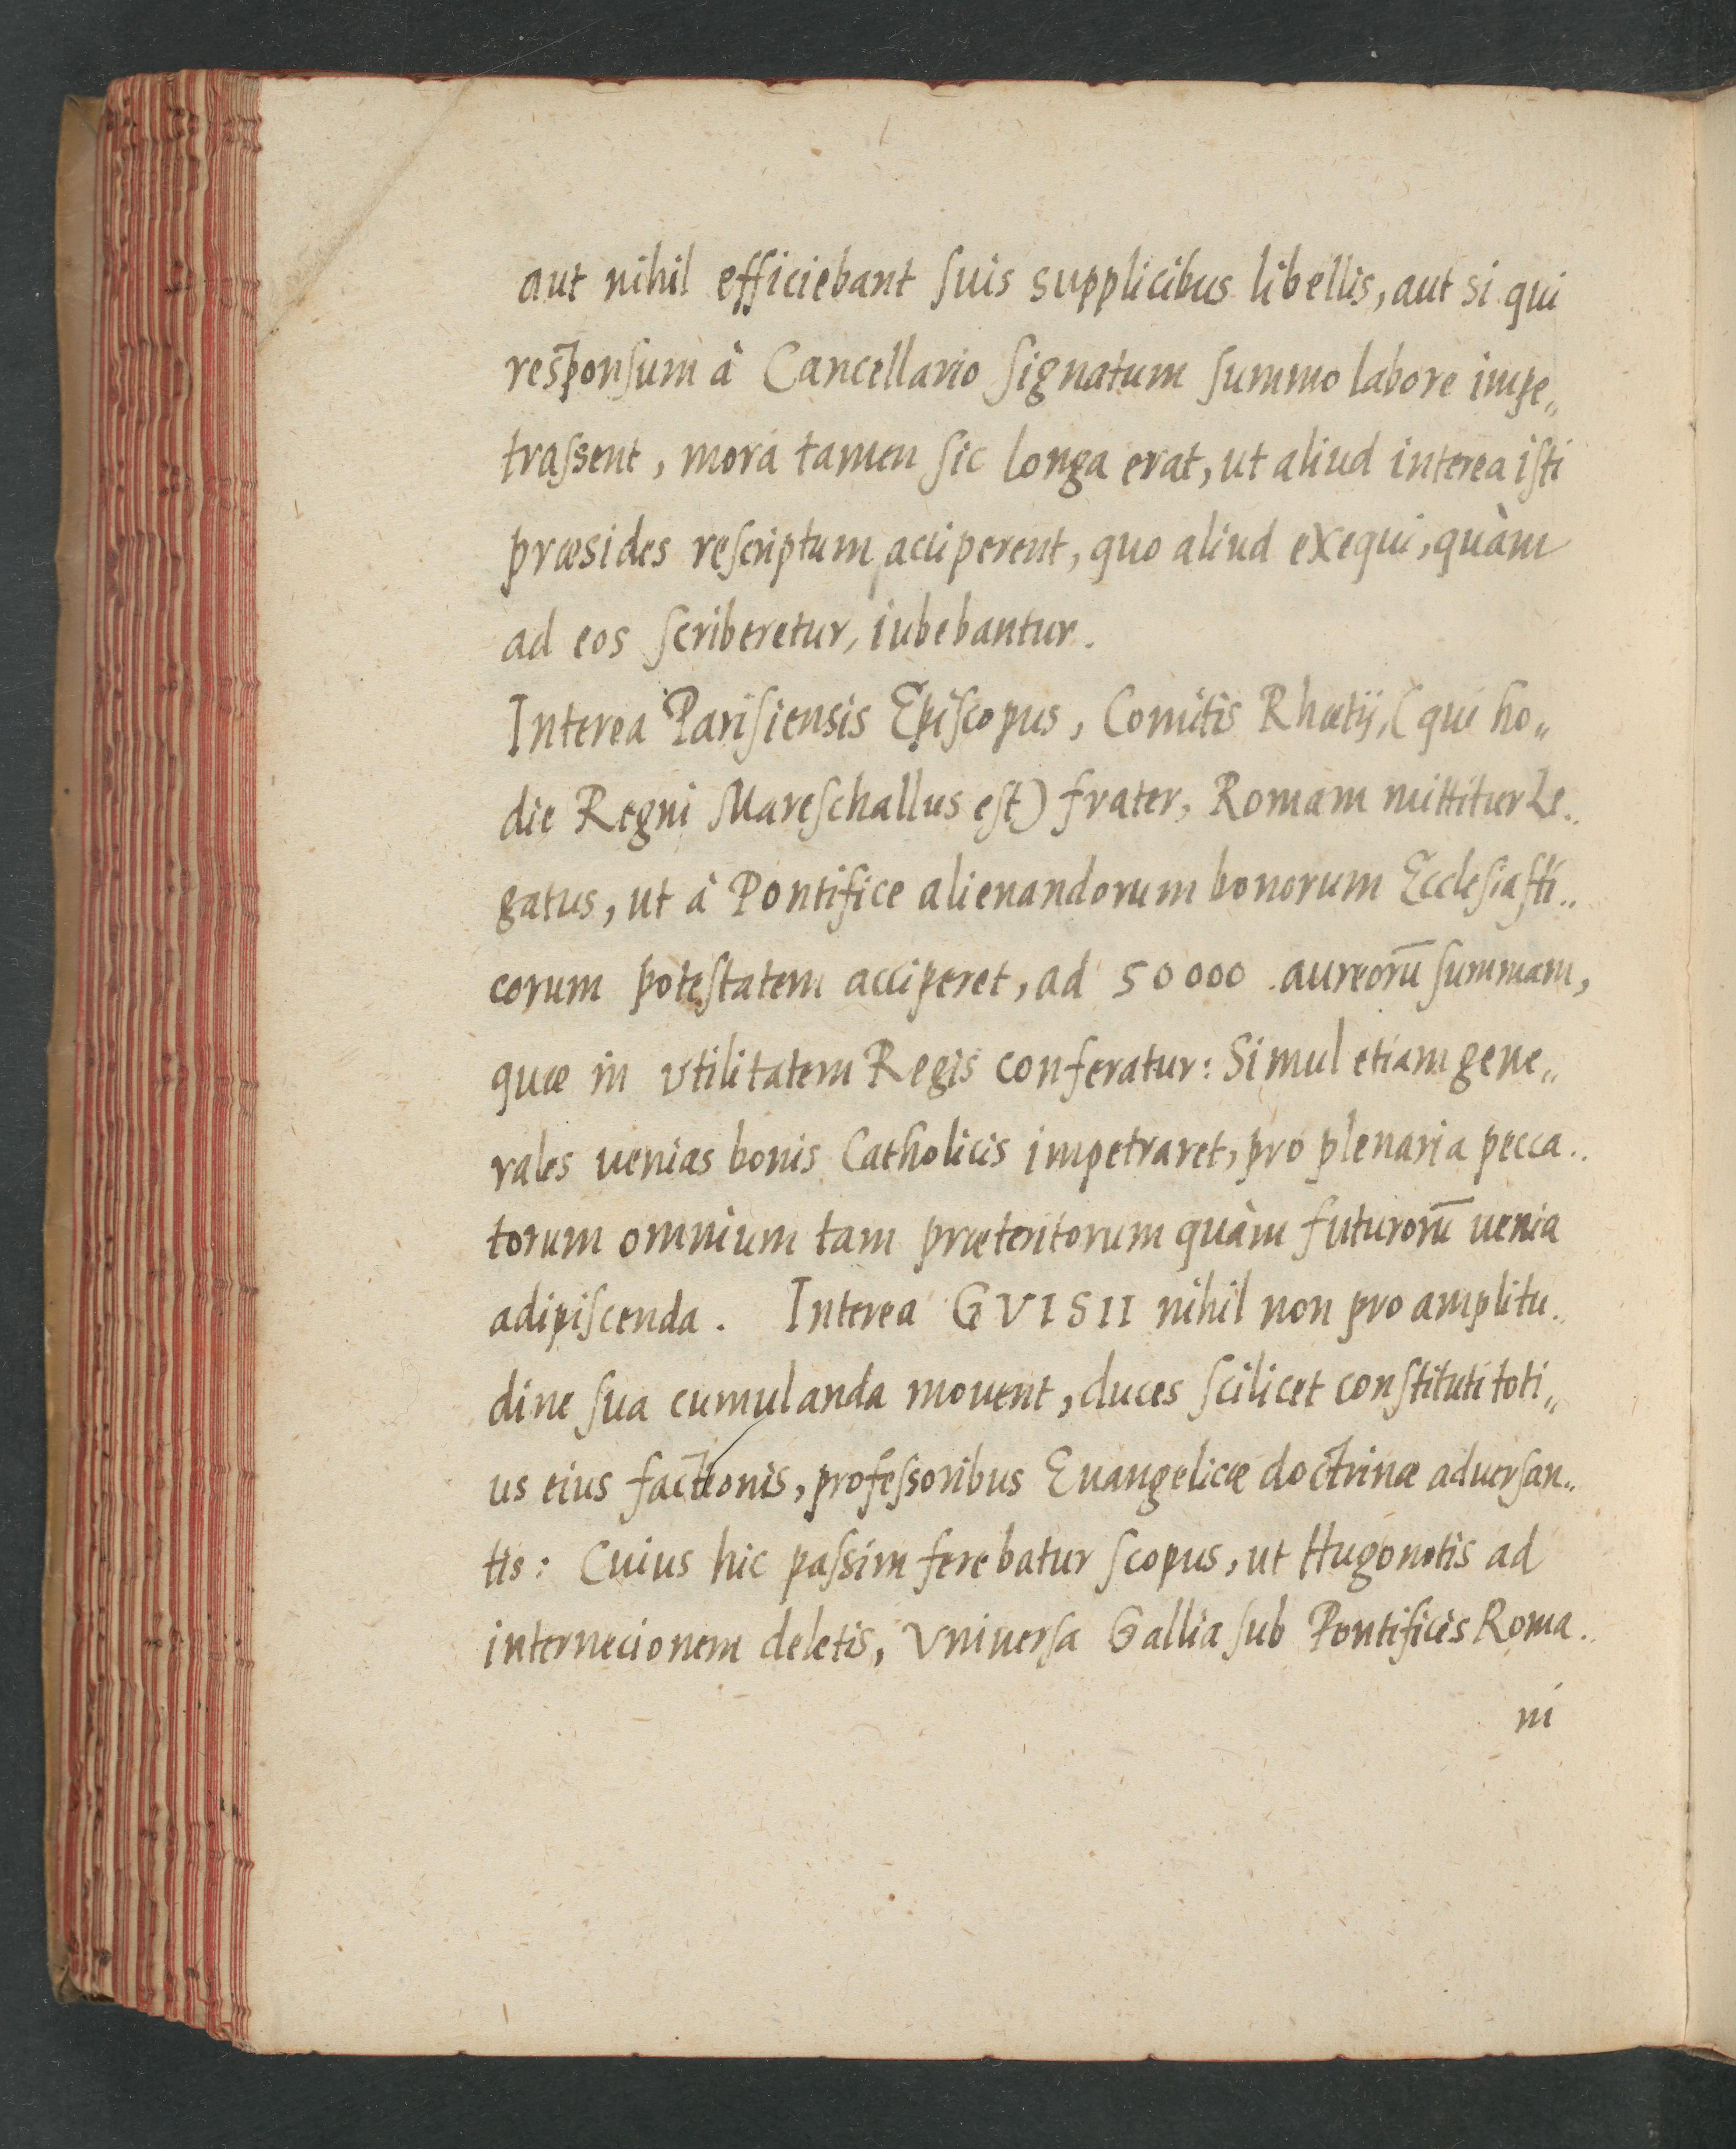 aut nihil efficiebant ſuis supplicibus libellis, aut si qui
responſum à Cancellario ſignatum ſummo labore impe„
traſsent, mora tamen ſic longa erat, ut aliud interea iſti
præsides reſcriptum acciperent, quo aliud exequi, quàm
ad eos ſcriberetur, iubebantur.
Interea Pariſiensis Epiſcopus, Comitis Rhætij, (qui ho„
die Regni Mareſchallus eſt) frater, Romam mittitur Le„
gatus, ut à Pontifice alienandorum bonorum Eccleſiaſti„
corum poteſtatem acciperet, ad 50000 aureorū ſummam,
quæ in vtilitatem Regis conferatur: Simul etiam gene„
rales uenias bonis Catholicis impetraret, pro plenaria pecca„
torum omnium tam præteritorum quàm futurorū uenia
adipiſcenda. Interea GVISII nihil non pro amplitu„
dine ſua cumulanda mouent, duces ſcilicet conſtituti toti„
us eius factionis, profeſsoribus Euangelicæ doctrinæ aduerſan„
tis: Cuius hic paſsim ferebatur ſcopus, ut Hugonotis ad
internecionem deletis, Vniuerſa Gallia ſub Pontificis Roma„
ni